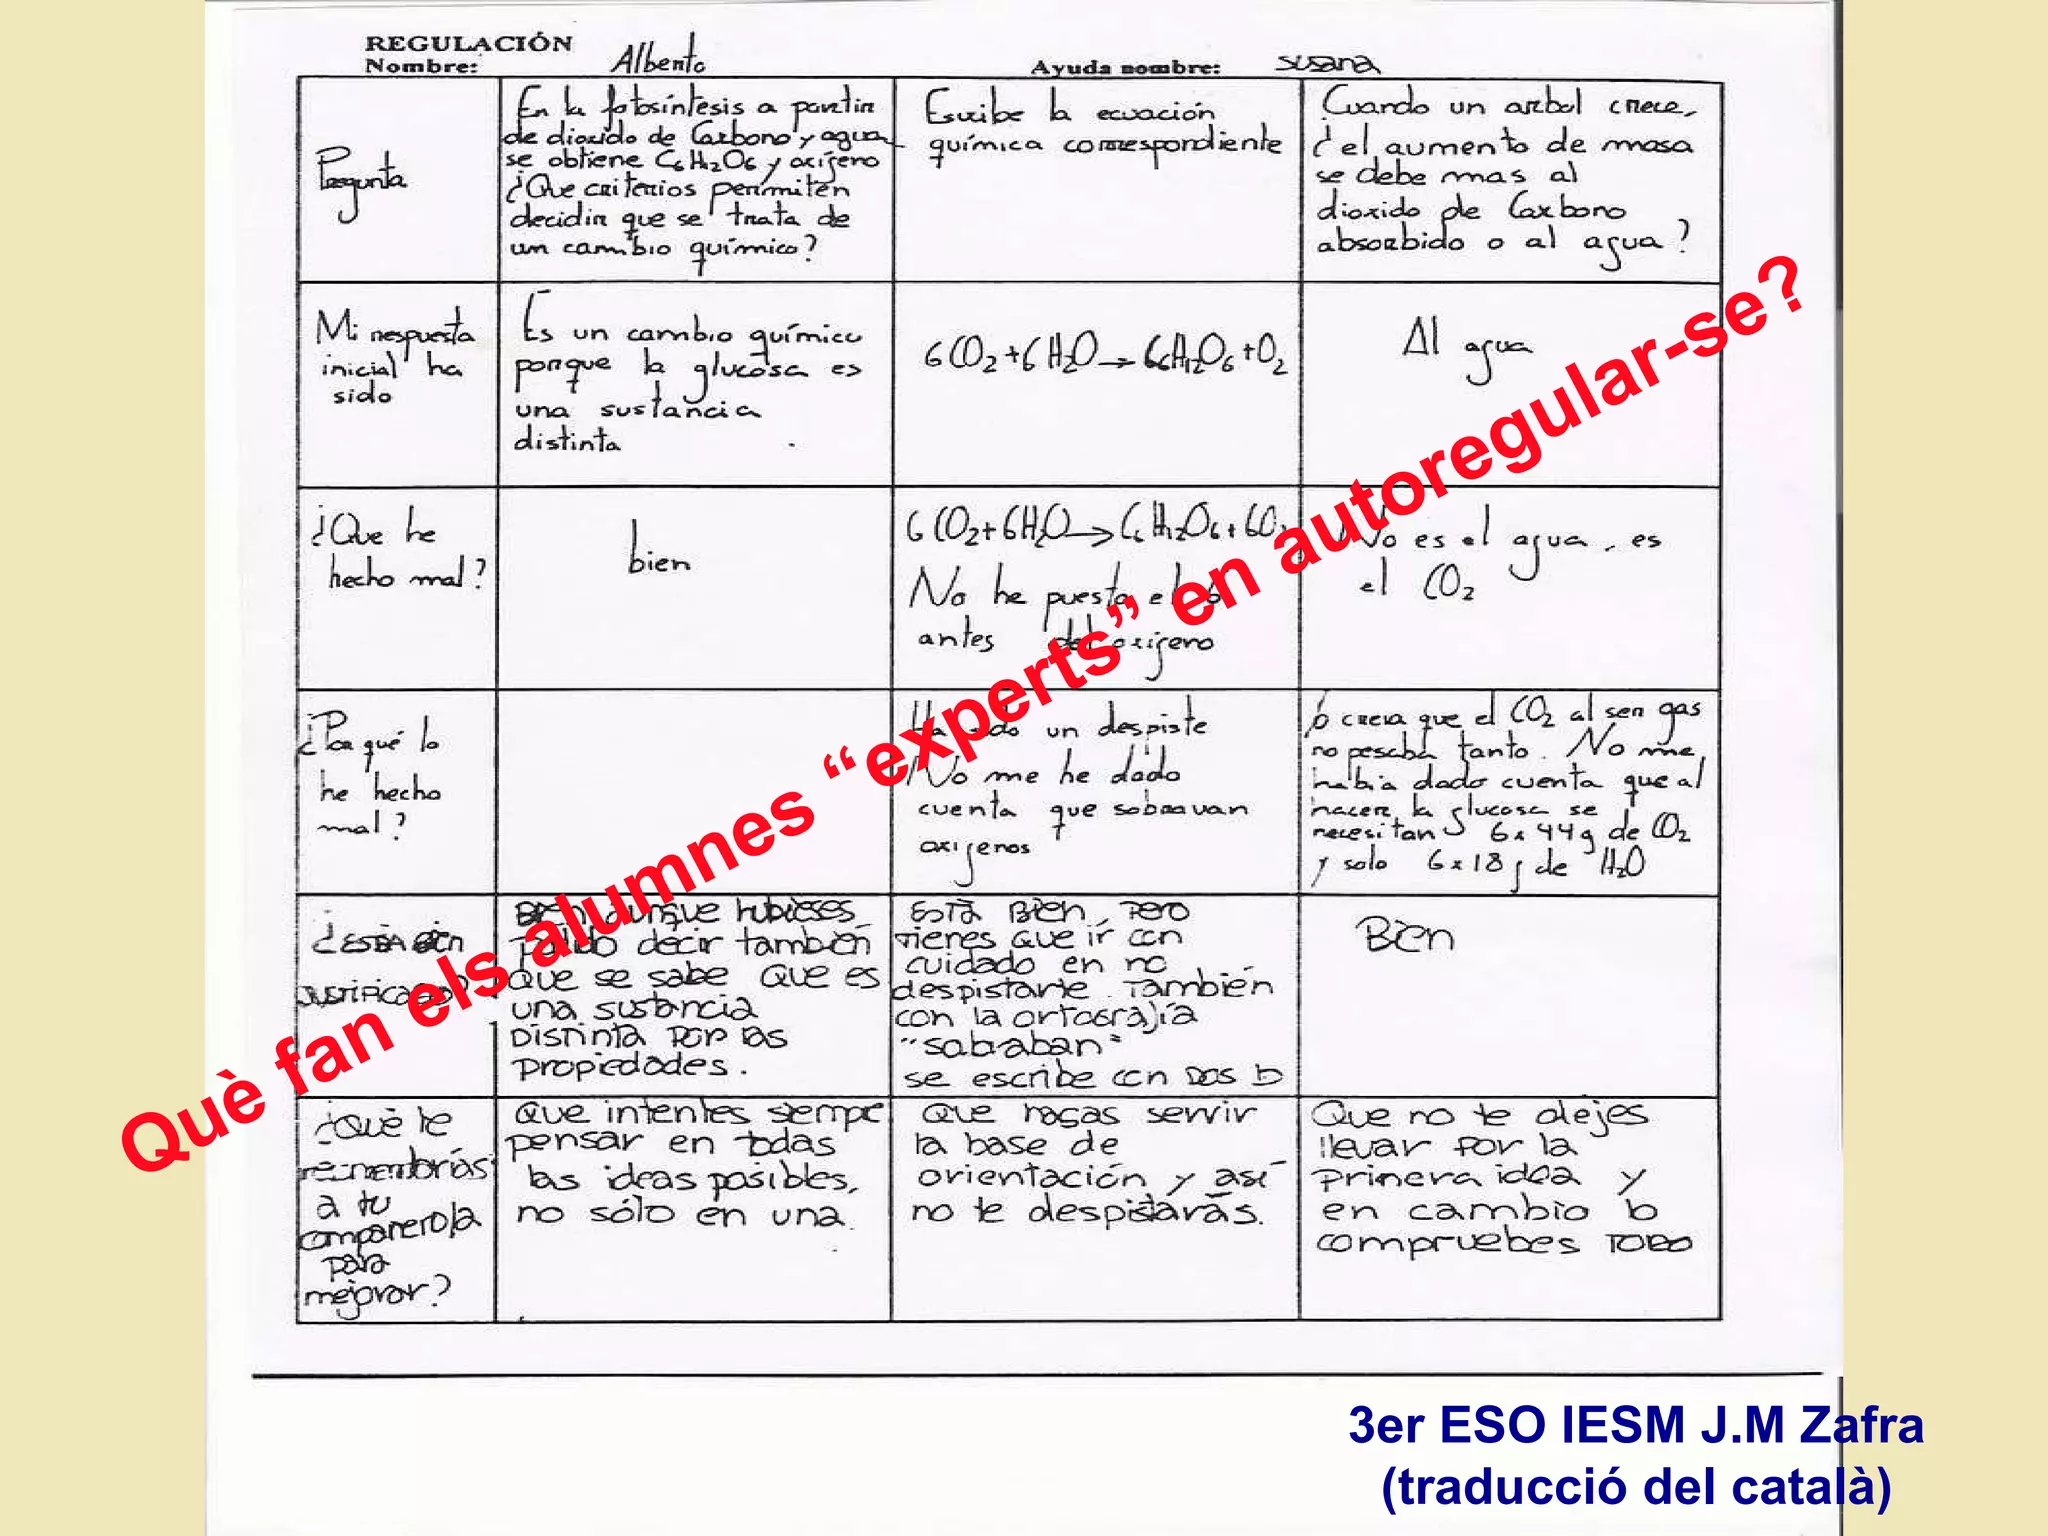 REGULACIÓN
Nombre: Alberto Ayuda nombre: Susana
Pregunta
En la fotosíntesis a partir
de dioxido de Carbono y agua
se obtiene C₆H₁₂O₆ y oxígeno
¿Que criterios permiten
decidir que se trata de
un cambio químico?
Escribe la ecuación
química correspondiente
Cuando un arbol crece,
¿el aumento de masa
se debe mas al
dioxido de Carbono
absorbido o al agua?
Mi respuesta
inicial ha
sido
Es un cambio químico
porque la glucosa es
una sustancia
distinta
6CO₂+6H₂O→C₆H₁₂O₆+O₂
Al agua
¿Que he
hecho mal?
bien
6CO₂+6H₂O→C₆H₁₂O₆+6O₂
No he puesto el 6
antes del oxigeno
No es el agua, es
el CO₂
¿Por qué lo
he hecho
mal?
Ha sido un despiste
No me he dado
cuenta que sobravan
oxigenos
Yo creia que el CO₂ al ser gas
no pesaba tanto. No me
habia dado cuenta que al
hacer la glucosa se
necesitan 6x44g de CO₂
y solo 6x18g de H₂O
¿ESTÁ BIEN
JUSTIFICADO?
Bien aunque hubieses
podido decir también
que se sabe que es
una sustancia
distinta por las
propiedades.
Está bien, pero
tienes que ir con
cuidado en no
despistarte. También
con la ortografía
"sobraban"
se escribe con dos b
Bien
¿Qué le
recomendarías
a tu
compañero/a
para
mejorar?
Que intentes siempre
pensar en todas
las ideas posibles,
no sólo en una.
Que hagas servir
la base de
orientación y así
no te despistarás.
Que no te dejes
llevar por la
primera idea y
en cambio lo
compruebes TODO
Què fan els alumnes “experts” en autoregular-se?
3er ESO IESM J.M Zafra
(traducció del català)